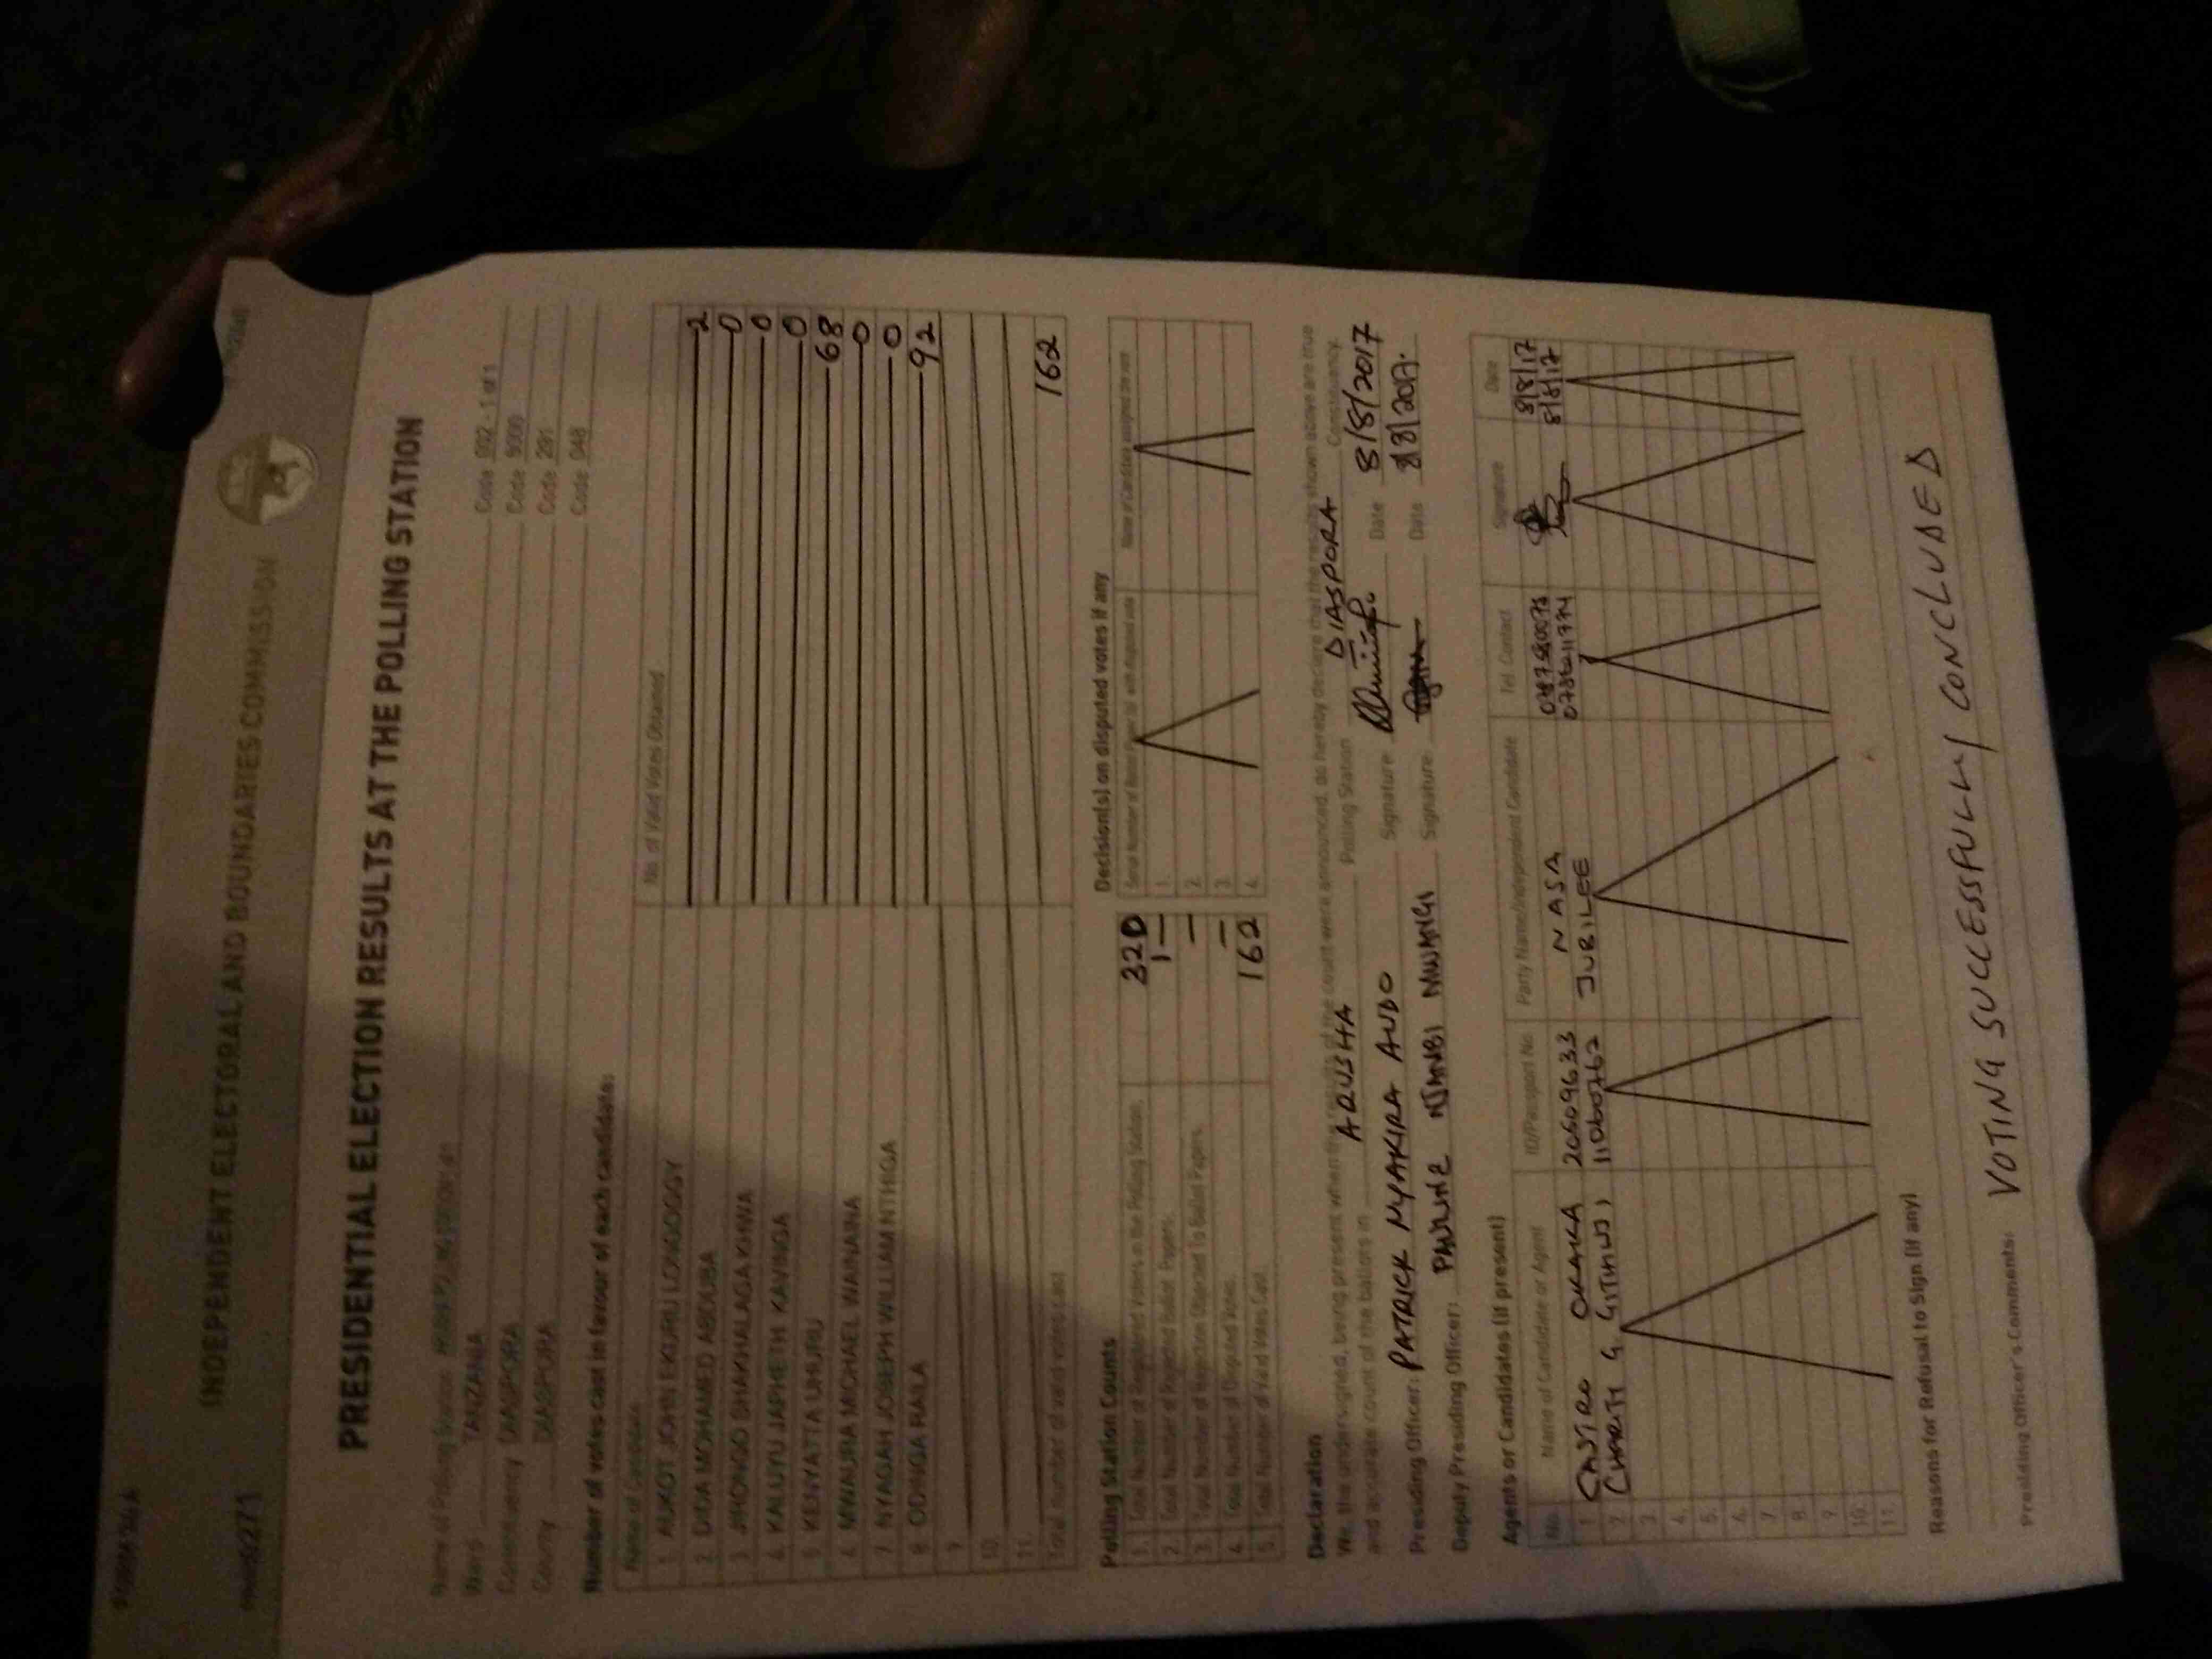 INDEPENDENT ELECTORAL AND BOUNDARIES COMMISSION
PRESIDENTIAL ELECTION RESULTS AT THE POLLING STATION
Name of Polling Station
Ward TANZANIA Code 002 - 1 of 1
Constituency DIASPORA Code
County DIASPORA Code
Code 048
Number of votes cast in favour of each candidate:
Name of Candidate No. of Valid Votes Obtained
1. AUKOT JOHN EKURU LONGOGGY 2
2. DIDA MOHAMED ABDUBA 0
3. JIRONGO SHAKHALAGA KHWA 0
4. KALUYU JAPHETH KAVINGA 0
5. KENYATTA UHURU 68
6. MWAURA MICHAEL WAINAINA 0
7. NYAGAH JOSEPH WILLIAM NTHIGA 0
8. ODINGA RAILA 92
9.
10.
11.
Total number of valid votes cast 162
Polling Station Counts
1. Total Number of Registered Voters in the Polling Station 320
2. Total Number of Rejected Ballot Papers. 1 —
3. Total Number of Rejection Objected To Ballot Papers. —
4. Total Number of Disputed Votes. —
5. Total Number of Valid Votes Cast. 162
Decision(s) on disputed votes if any
1.
2.
3.
4.
Declaration
We, the undersigned, being present when the results of the count were announced, do hereby declare that the results shown above are true
and accurate count of the ballots in ARUSHA Polling Station DIASPORA Constituency.
Presiding Officer: PATRICK NYAKIRA AUDO Signature Date 8/8/2017
Deputy Presiding Officer: PAULINE NJAMBI MWANGI Signature Date 8/8/2017.
Agents or Candidates (if present)
No. Name of Candidate or Agent ID/Passport No Party Name/Independent Candidate Tel. Contact Signature Date
1. CASTRO 20609633 NASA 8/8/17
2. CHARITY G. GITHINJI JUBILEE 8/8/17
3.
4.
5.
6.
7.
8.
9.
10.
11.
Reasons for Refusal to Sign (if any)
Presiding Officer's Comments: VOTING SUCCESSFULLY CONCLUDED